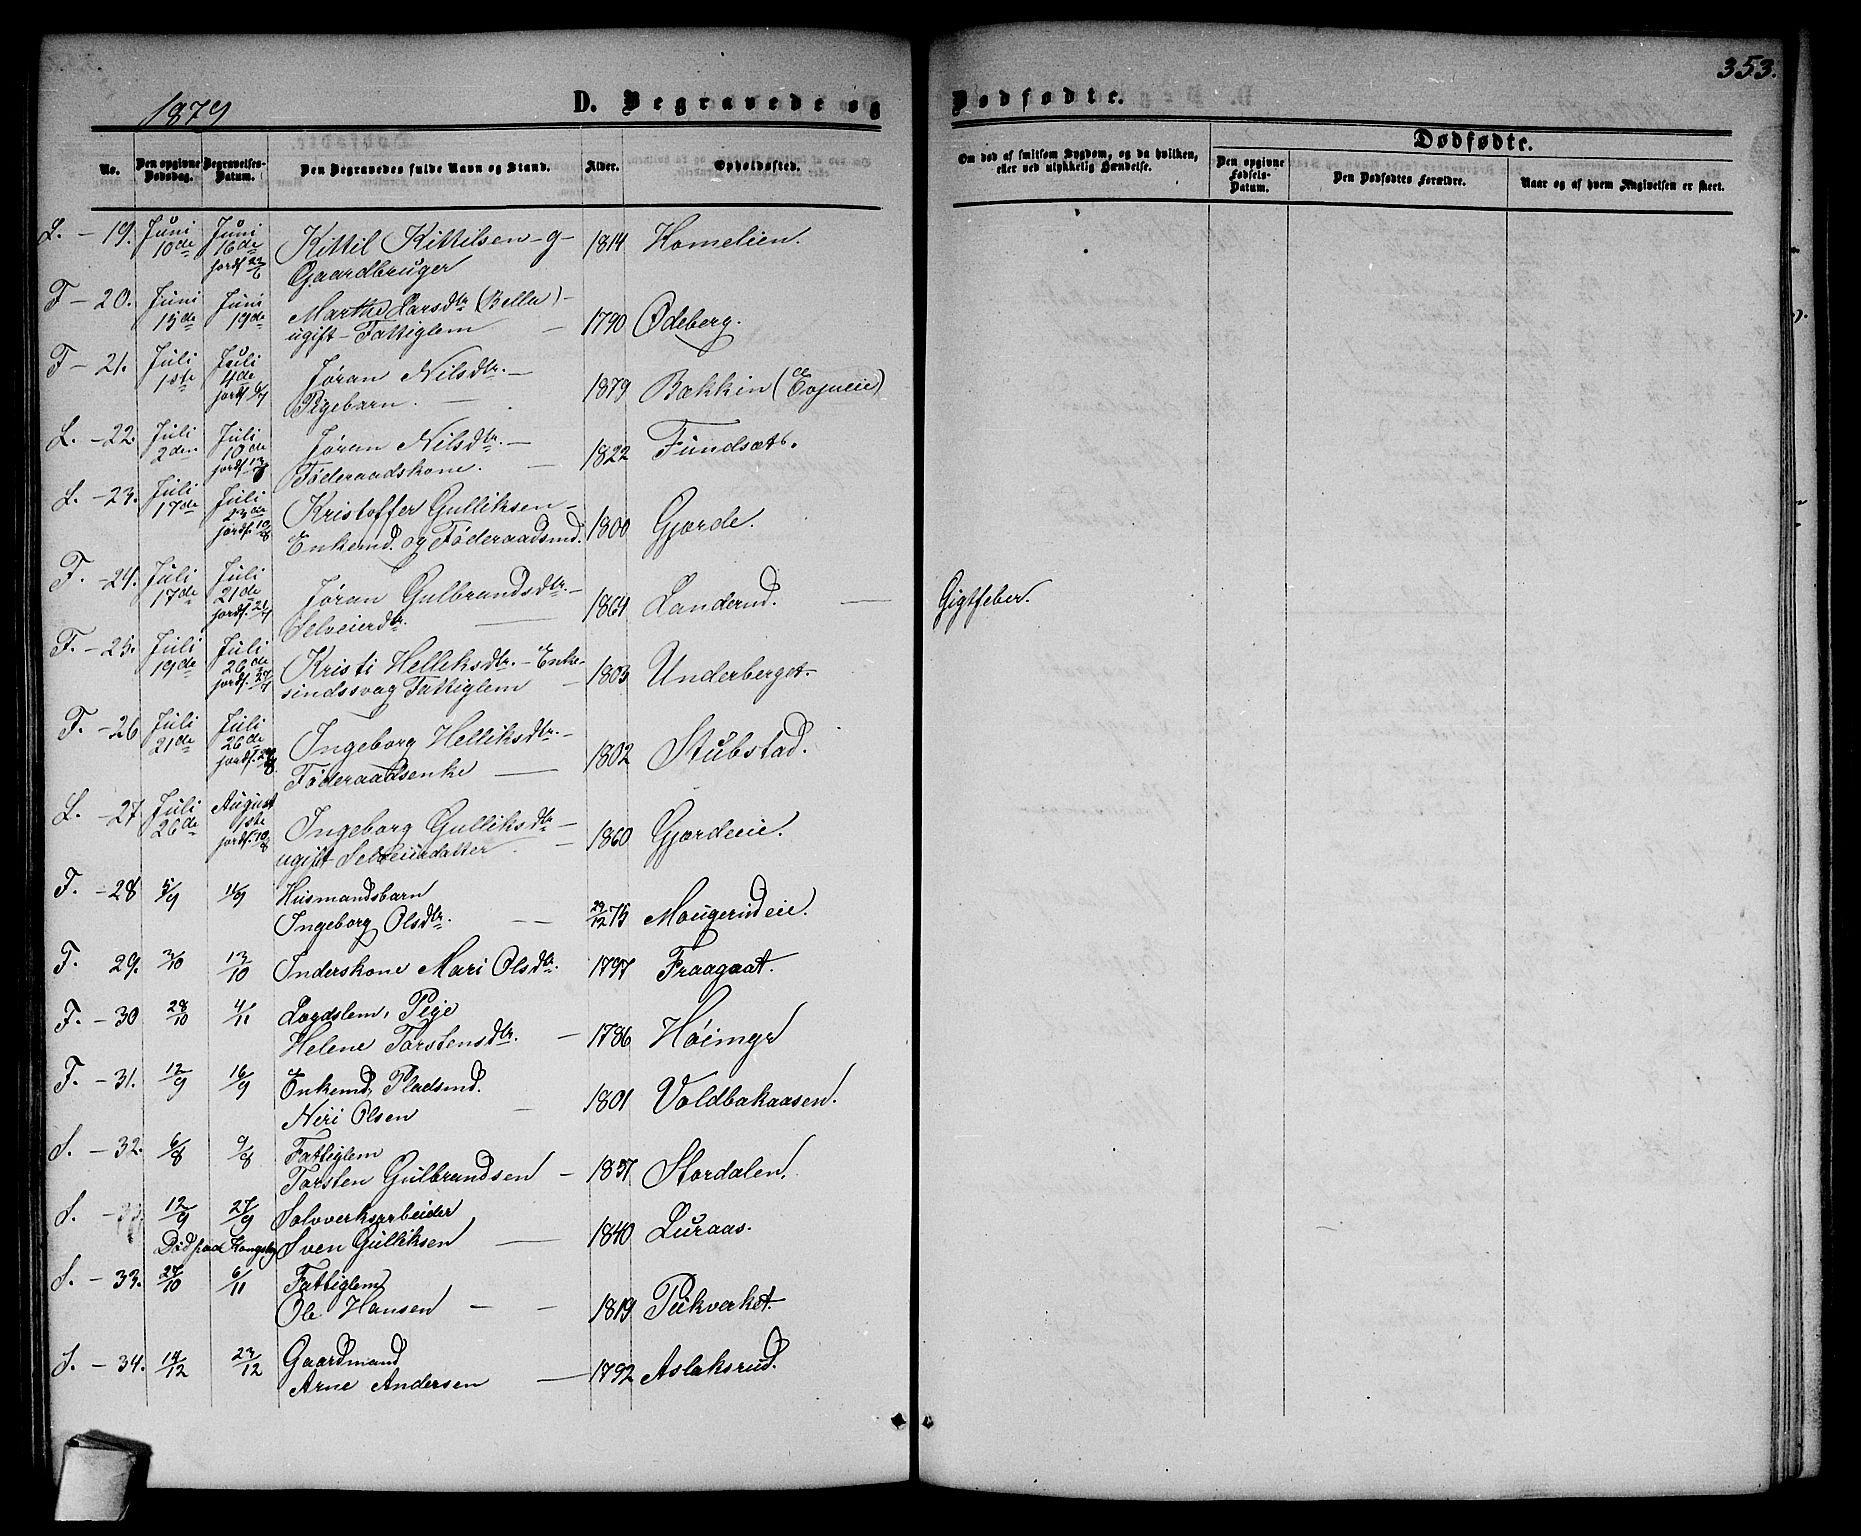 353.
1879
D. Begravede og Dødfødte.
No.
Den opgivne Dødsdag.
Begravelses-Datum.
Den Begravedes fulde Navn og Stand.
Alder.
Opholdssted.
Om død af smitsom Sygdom, og da hvilken, eller ved ulykkelig Hændelse.
Dødfødte.
Den opgivne Fødsels-Datum.
Den Dødfødtes Forældre.
Naar og af hvem Angivelsen er skeet.
L. - 19. Juni 10de Juni 16de jordf. 22/6 Kittil Kittilsen - g - 1814 Homelien.
Gaardbruger
F - 20. Juni 15de Juni 19de Marthe Larsdtr (Bella) -
ugift - Fattiglem - 1790 Ødeberg.
F - 21. Juli 1ste Juli 4de jordf 6/7 Jøran Nilsdtr. -
Pigebarn. - 1879 Bakkin (Evjueie)
L. - 22. Juli 2den Juli 10de jordf 13/7 Jøran Nilsdtr. - 1822 Fundsæt.
Føderaadskone. -
L. - 23. Juli 17de Juli 23de jordf. 10/8 Kristoffer Gulliksen - 1800 Gjørde.
Enkemd. og Føderaadsmd.
F. - 24. Juli 17de Juli 21de jordf. Jøran Gulbrandsdtr. - 1864 Landerud. - Gigtfeber.
Selveierdtr. -
F. - 25. Juli 19de Juli 26de jordf. 27/7 Kristi Helleksdtr. - Enke -
sindssvag Fattiglem - 1803 Underberget.
F. - 26 Juli 21de Juli 26de jordf. Ingeborg Helliksdtr. -
Føderaadsenke - 1802 Stubstad.
L. - 27 Juli 26de August 1ste jordf. 10/8 Ingeborg Gulliksdtr - 1860 Gjordeeie.
ugift Selveierdatter -
F. - 28 5/9 11/9 Husmandsbarn
Ingeborg Olsdtr. - - 29/12 75 Mougerudeie.
F. 29. 3/10 13/10 Inderskone Mari Olsdtr. 1797 Fraagaat.
F. - 30 28/10 4/11 Lægdslem, Pige
Helene Torstensdtr. - 1786 Høimyr
F. - 31. 12/9 16/9 Enkemd, Pladsmd.
Neri Olsen - 1801 Voldbakaasen.
S. - 32. 6/8 9/8 Fattiglem
Torsten Gulbrandsen - 1837 Stordalen.
S. - 12/9 27/9 Sølvverksarbeider
Død paa Kongsbg Sven Gulliksen - 1840 Luraas.
S. - 33. 27/10 6/11 Fattiglem
Ole Hansen - - 1819 Pukverket.
S. - 34. 14/12 23/12 Gaardmand
Arne Andersen - 1792 Aslaksrud.